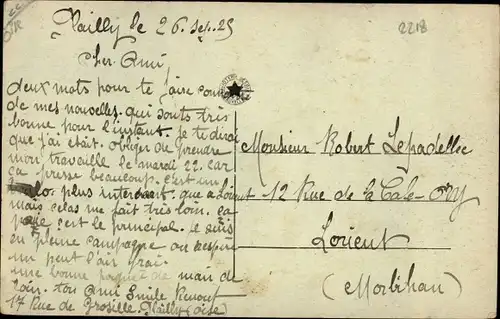 Plailly le 26 sep. 25
2218
cher Ami
deux mots pour te faire con
de mes nouvelles qui sonts trés
bonne pour l'instant. je te dirai
que j'ai était obliger de prendre
mon travaille le mardi 22. car
ça presse beaucoup. c'est un
plus interesant. que a Lorient
mais celas me fait trés loin. ça
c'est le principal. je suis
en pleine campagne on respire
un peut l'air frais
une bonne poignée de main de
loin. ton Ami Emile
17 Rue de Plailly (oise)
Monsieur Robert Lepadellec
12 Rue de la Cale-Ory
Lorient
(Morbihan)